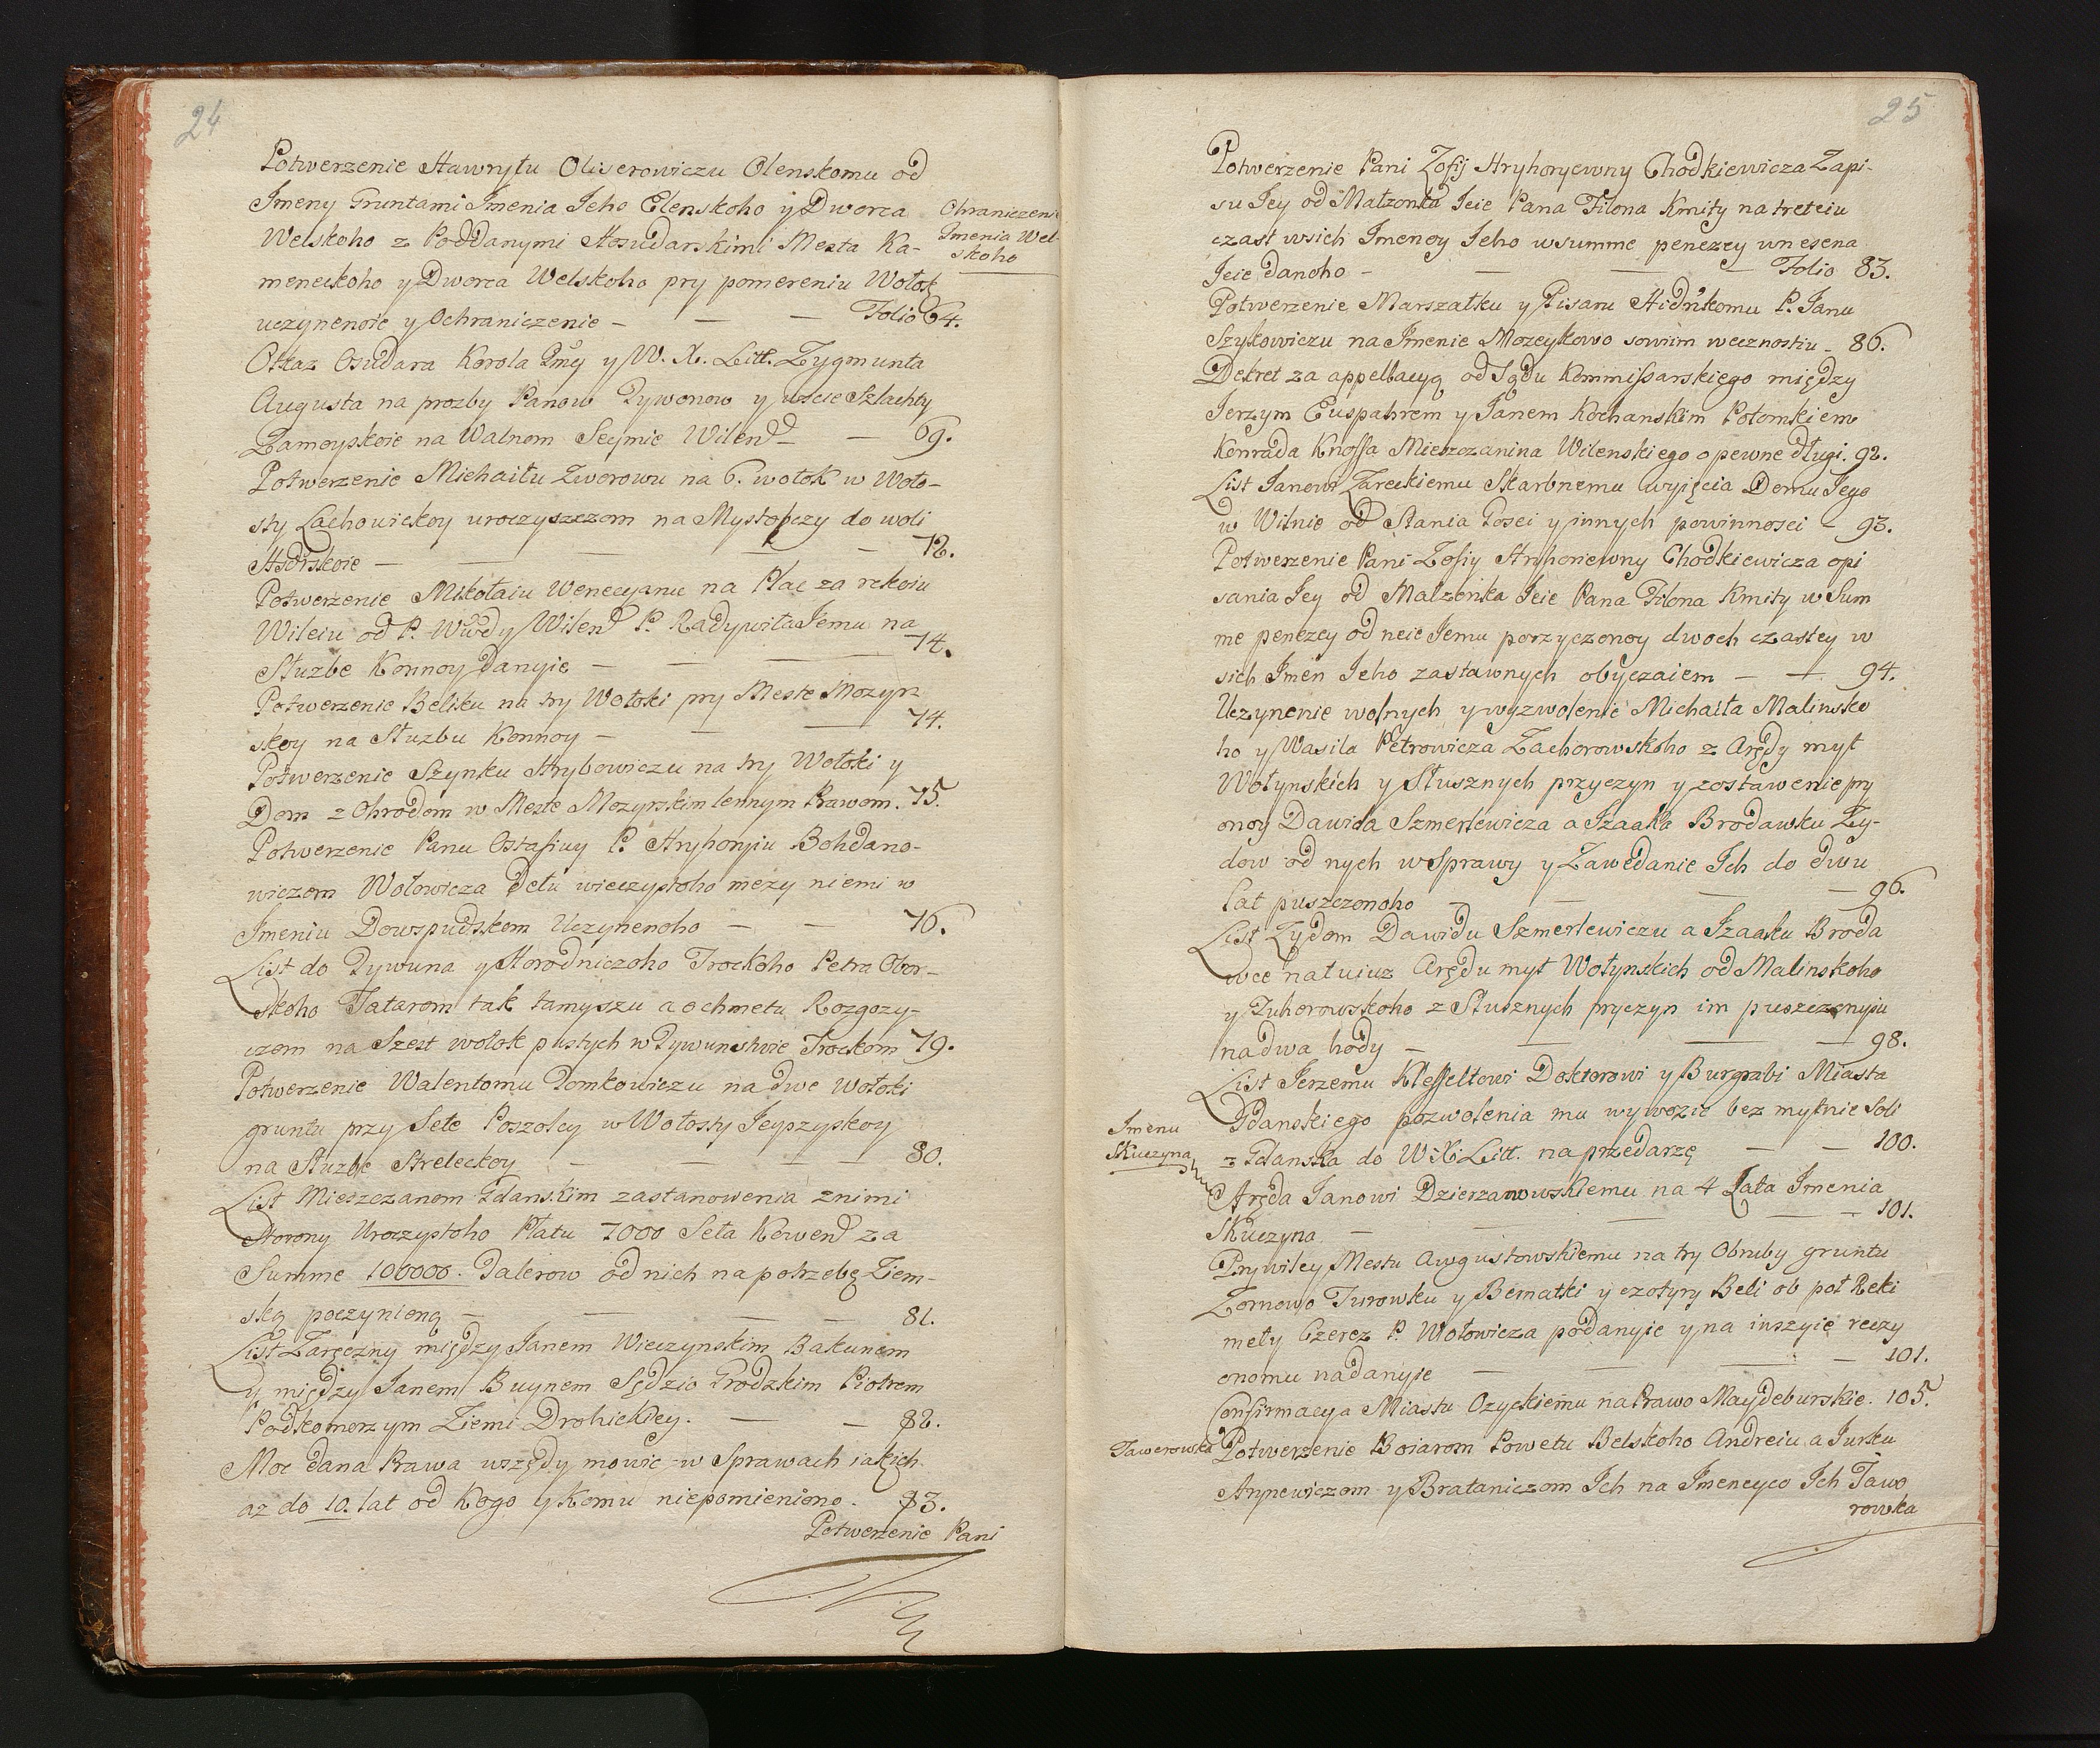 24
Potwerzenie Hawryłu Oliserowiczu Olenskomu od
Jmeny Gruntami Jmenia Jeho Elenskoho y Dworca
Ohraniczeni
Jmenia Wel-
skoho
Welskoho z Poddanymi Hosudarskimi Mesta Ka-
meneckoho y Dworca Welskoho pry pomereniu Wołok
uczynenoie y Ochraniczenie – — — Folio 64.
Otkaz Osudara Korola Jmęy y W. X. Litt. Zygmunta
Augusta na prozby Panow Tywonow y wseie Szlachty
Zamoyskoie na Walnom Seymie Wilend — — 69.
Potwerzenie Michaiłu Zworowu na 6. wołok w Woło-
sty Lachowickoy uroczyszczom na Mysłobczy do woli
Hsdrskoie — — — — — 72.
Potwerzenie Mikołaiu Wenecyanu na Plac za rekoiu
Wileiu od P. Wwdy Wilend P. Radywiła Jemu na
Słuzbe Konnoy danyie — — — 74.
Potwerzenie Beliku na try Wołoki pry Meste Mozyr
skoy na Słuzbu Konnoy — — — 74.
Potwerzenie Szynku Hrybowiczu na try Wołoki y
Dom z Ohrodom w Meste Mozyrskim lennym Prawom. 75.
Potwerzenie Panu Ostafiuy P. Hryhoryiu Bohdano-
wiczom Wołowicza Dełu wieczystoho mezy niemi w
Jmeniu Dowspudskom Uczynenoho — — 76.
List do Tywuna y Horodniczoho Trockoho Petra Obor-
skoho Tatarom tak tamyszu a ochmetu Rozgozy-
czom na Szest wołok pustych w Tywunstwie Trockom 79.
Potwerzenie Walentomu Tomkowiczu na dwe wołoki
gruntu przy Sele Poszolcy w Wołosty Jeypzyskoy
na Słuzbe Streleckoy — — — — 80.
List Mieszczanom Gdanskim zastanowenia z nimi
Storony Uroczystoho Płatu 7000 Seła Kowend za
Summe 100000. Talerow od nich na potrzebę Ziem-
ską poczynioną — — — — 81.
List Zaręczny między Janem Wieczynskim Bakunem
y między Janem Buynem Sędzio Grodzkim Piotrem
Podkomorzym Ziemi Drohickiey. — — 82.
Moc dana Prawa wszędy mowic w Sprawach iakich
az do 10. lat od Kogo y Komu niepomieniono. 83.
Potwerzenie Pani
25
Potwerzenie Pani Zofij Hryhoryewny Chodkiewicza Zapi-
su Jey od Małzonka Jeie Pana Filona Kmity na treteiu
czast wsich Jmenoy Jeho w summe penezey unesena
Jeie danoho — — — — Folio 83.
Potwerzenie Marszałku y Pisaru Hsdrskomu P. Janu
Szykowiczu na Jmenie Mozeykowo sowim wecznostiu – 86.
Dekret za appellacyą od Sądu Kommissarskiego między
Jerzym Euspahrem y Janem Kochanskim Potomkiem
Konrada Knossa Mieszczanina Wilenskiego o pewne długi. 92.
List Janowi Zareckiemu Skarbnemu wyięcia Domu Jego
w Wilnie od Stania Gosci y innych powinnosci – 93.
Potwerzenie Pani Zofiy Hryhorewny Chodkiewicza opi
sania Jey od Malzonka Jeie Pana Filona Kmity w Sum
me penezey od neie Jemu porzyczonoy dwoch czastey w
sich Jmen Jeho zastawnych obyczaiem — — 94.
Uczynenie wolnych y wyzwolenie Michaiła Malinsko
ho y Wasila Petrowicza Zachorowskoho z Arędy myt
Wołynskich y Słusznych przyczyn y zostawenie pry
onoy Dawida Szmerlewicza a Jzaaka Brodawku Zy-
dow od nych w Sprawy y Zawedanie Jch do dwu
lat puszczonoho — — — — 96.
List Zydom Dawidu Szmerlewiczu a Jzaaku Broda
wce na tuiuz Arędu myt Wołynskich od Malinskoho
y Zuhorowskoho z Słusznych pryczyn im puszczonyiu
na dwa hody — — — — 98.
List Jerzemu Klesseltowi Doktorowi y Burgrabi Miasta
Gdanskiego pozwolenia mu wywozic bez mytnie Soli
z Gdanska do W. X. Litt. na przedarzę — — 100.
Jmenu
Skuczyna
Aręda Janowi Dzierzanowskiemu na 4 Lata Jmenia
Skuczyna — — — — 101.
Prywiley Mestu Awgustowskiemu na try Obruby gruntu
Zornowo Turowku y Bernatki y czotyry Beli ob poł Reki
mety Czerez P. Wołowicza podanyie y na inszyie reczy
onomu nadanyie — — — — 101.
Confirmacya Miastu Ozyckiemu na Prawo Maydeburskie. 105.
Tawerowska
Potwerzenie Boiarom Powetu Belskoho Andreiu a Jurku
Hrynewiczom y Brataniczom Jch na Jmeneyco Jch Tawo
rowka